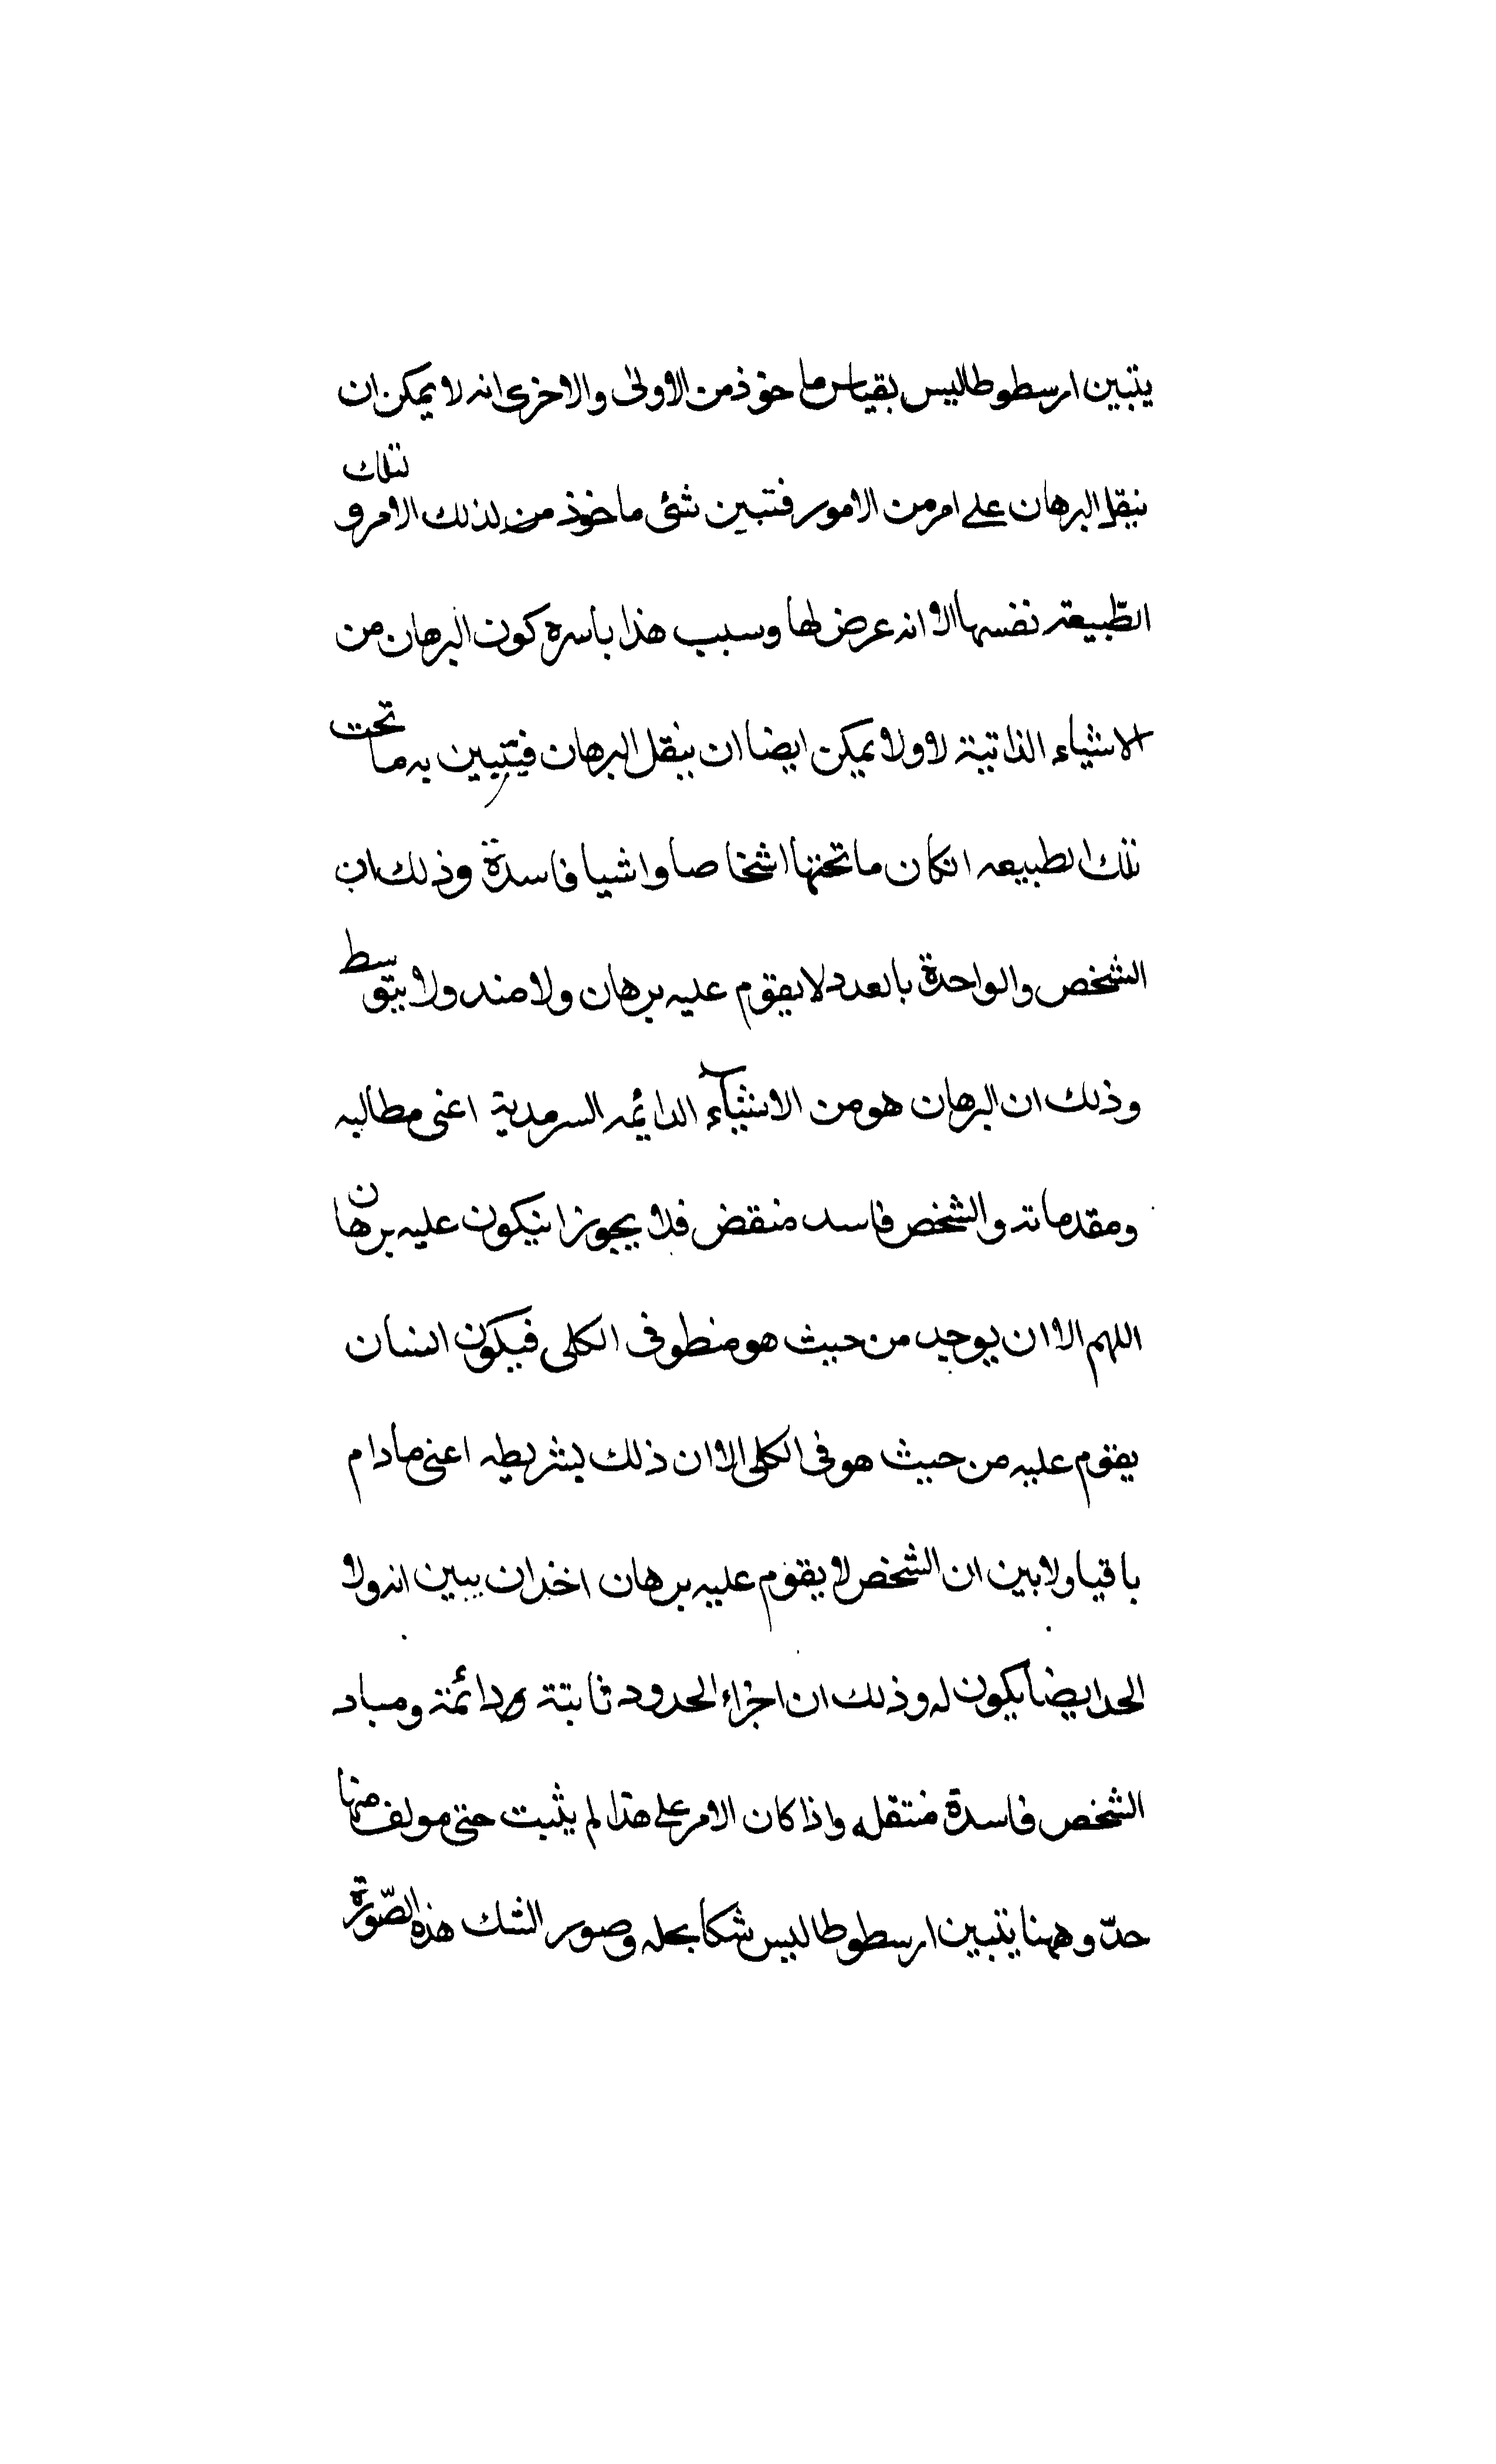 يتبين ارسطوطاليس بقياس ماخوذ من الاولى والاخرى انه لا يمكن ان
ينقل البرهان على امر من الامور فتبين شئ ماخوذ من لذلك الامر و لتلك
الطّبيعة نفسها الا انه عرض لها وسبب هذا باسره كون البرهان من
الاشياء الذاتية لاولا يمكن ايضا ان ينقل البرهان فيتبين به ما تحت
تلك الطبيعه انكان ماتحتها اشخاصا واشيا فاسدة وذلك ان
الشخص والواحدة بالعدد لا يقوم عليه برهان ولا منه ولا يتوسط
وذلك ان البرهان هو من الاشياء الدائمه السرمدية اعنى مطالبه
ومقدماته والشخص فاسد منقض فلا يجوز انيكون عليه برهان
اللهم الا ان يوجد من حيث هو منطو فى الكلى فيكون انسان
يقوم عليه من حيث هو فى الكلى الا ان ذلك بشريطه اعنى مادام
باقيا ولابين ان الشخص لا يقوم عليه برهان اخذ ان يبين انه ولا
الحد ايضا يكون له وذلك ان اجزاء الحدود ثابتة ودائمة ومباد
الشخص فاسدة منتقله واذا كان الامر على هذا لم يثبت حتى مولف منها
حدّ وههنا يتبين ارسطوطاليس شكا بحله وصور الشك هذه الصّورة